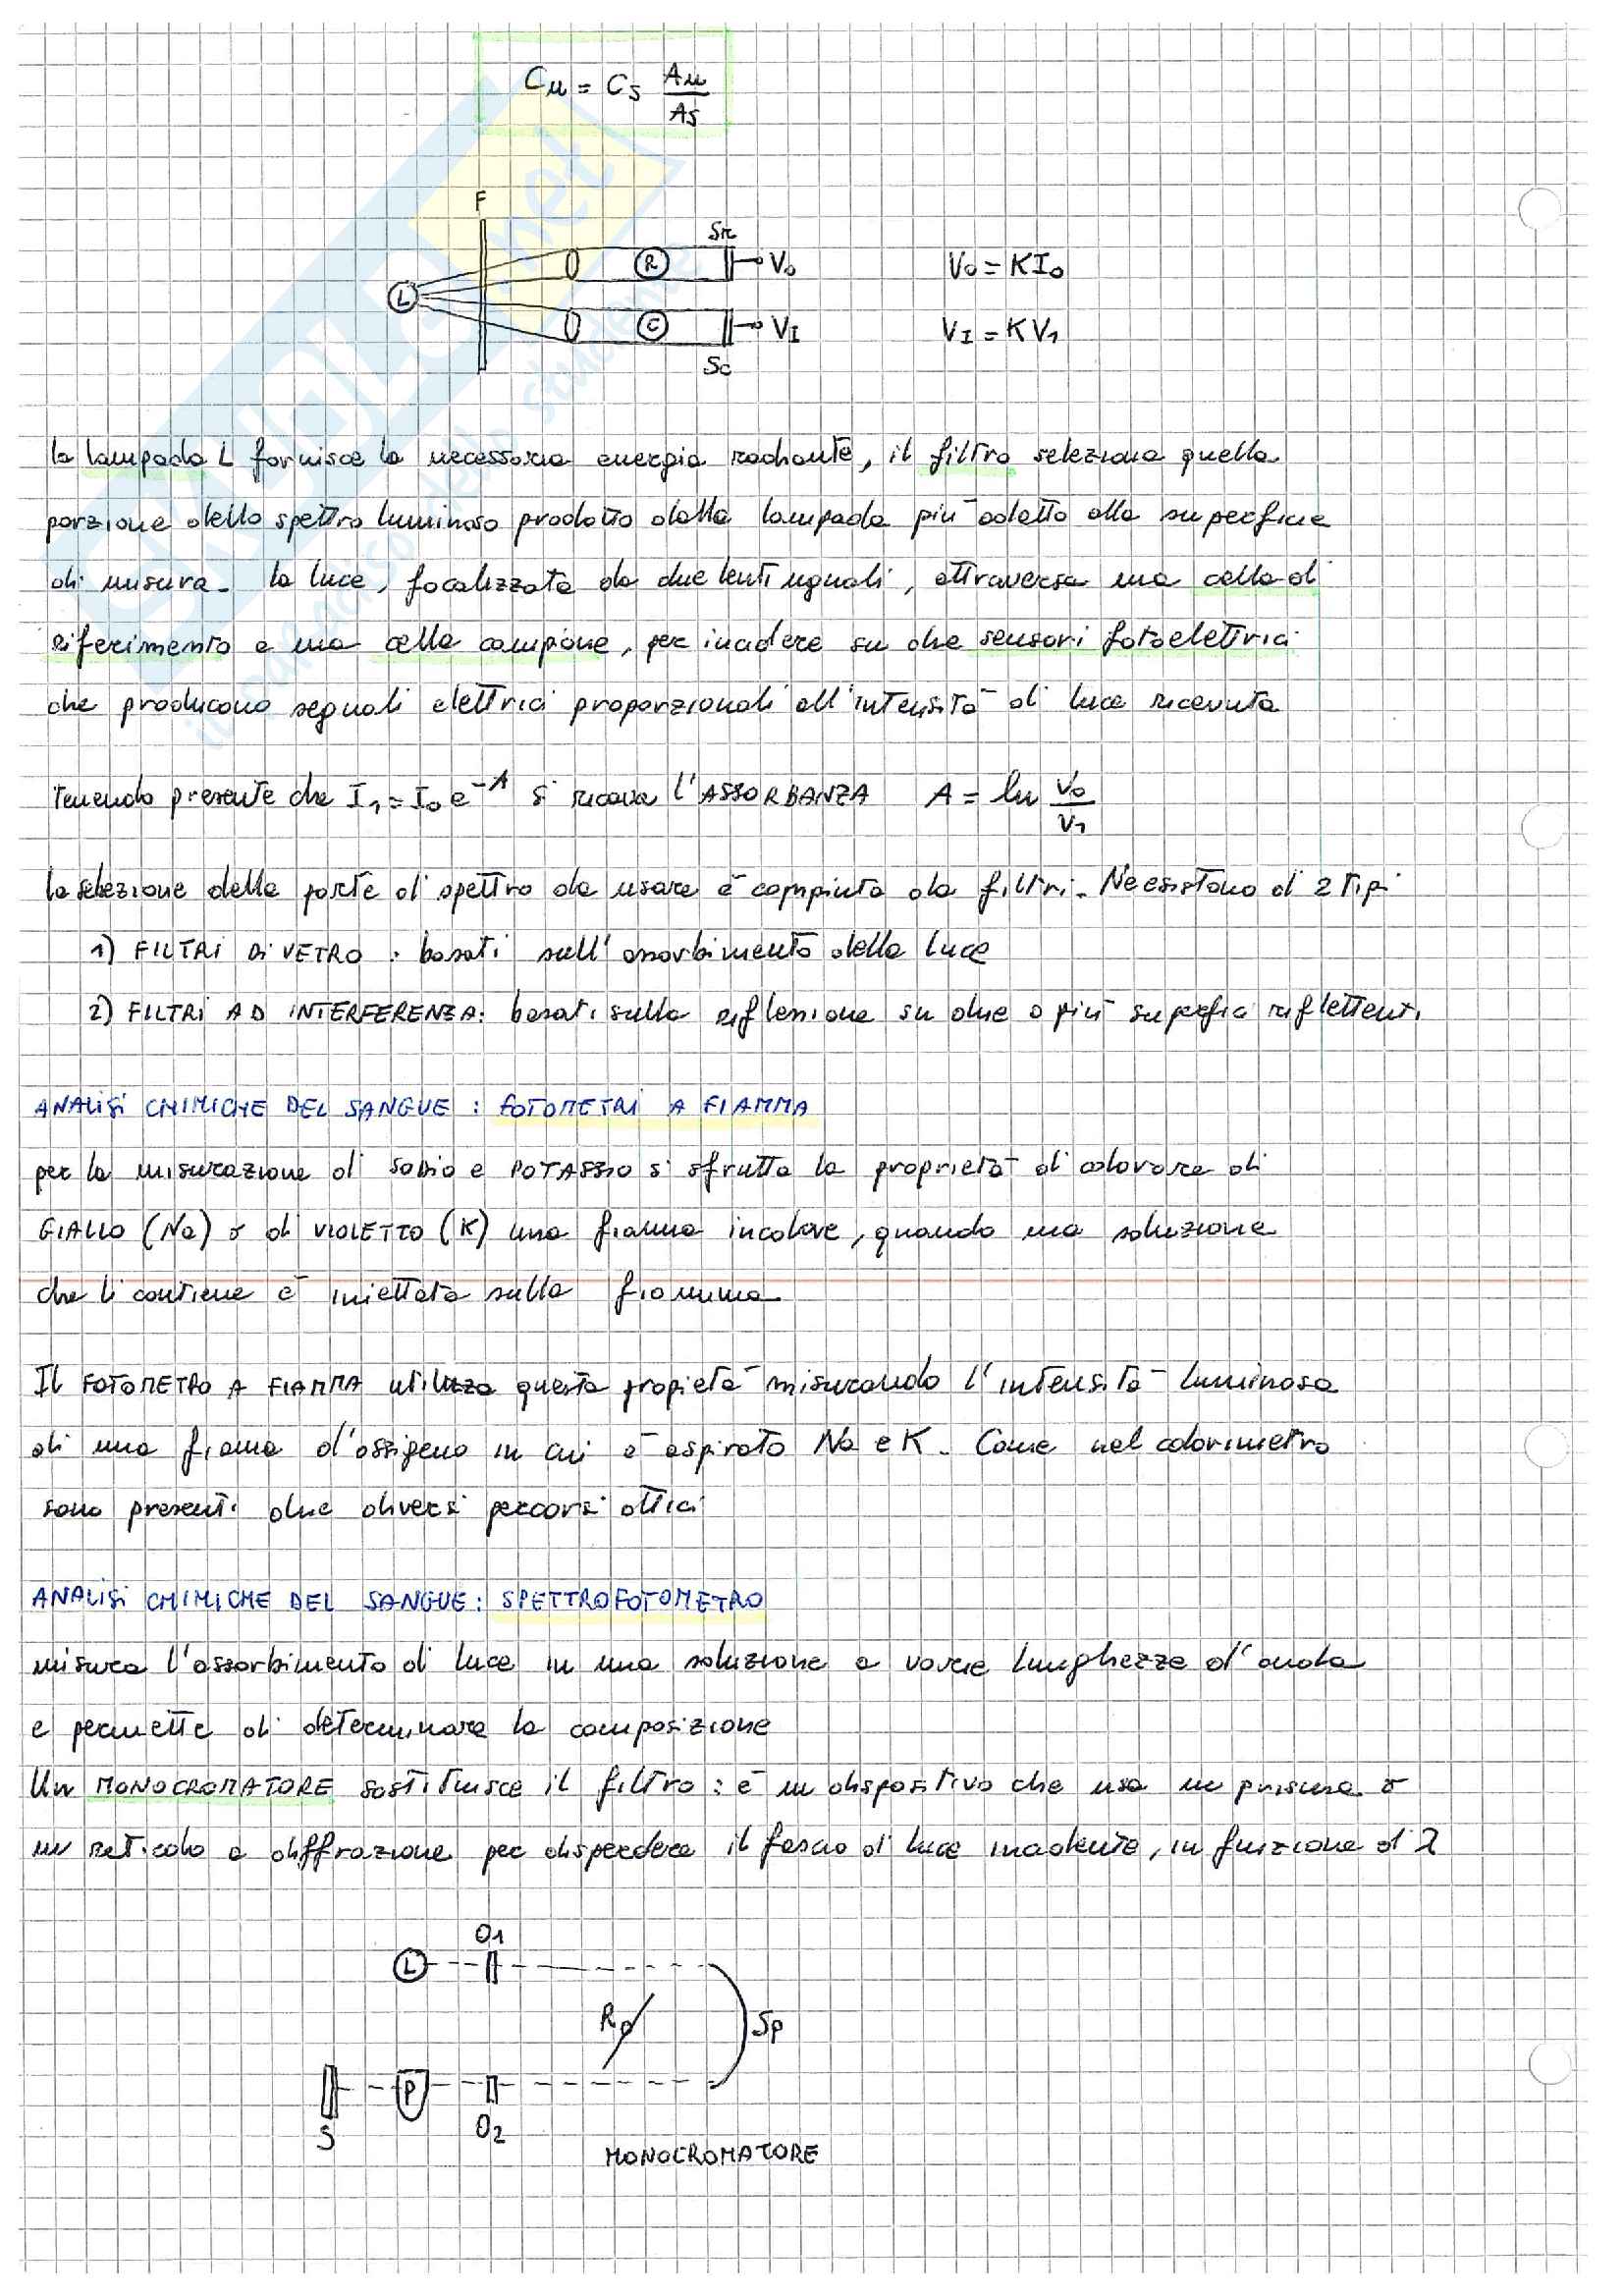 Cu = Cs Au/As
F
SR
L R V0 V0 = KI0
C VI VI = KV1
Sc
la lampada L fornisce la necessaria energia radiante, il filtro seleziona quella
porzione dello spettro luminoso prodotto dalla lampada più adatto alla superficie
di misura. la luce, focalizzata da due lenti uguali, attraversa una cella di
riferimento e una cella campione, per incidere su due sensori fotoelettrici
che producono segnali elettrici proporzionali all'intensità di luce ricevuta
Tenendo presente che I1 = I0 e^-A si ricava l'ASSORBANZA A = ln V0/V1
la selezione della parte di spettro da usare è compiuta da filtri. Ne esistono di 2 tipi
1) FILTRI DI VETRO: basati sull'assorbimento della luce
2) FILTRI AD INTERFERENZA: basati sulla riflessione su due o più superfici riflettenti
ANALISI CHIMICHE DEL SANGUE: FOTOMETRI A FIAMMA
per la misurazione di SODIO e POTASSIO si sfrutta la proprietà di colorare di
GIALLO (Na) o di VIOLETTO (K) una fiamma incolore, quando una soluzione
che li contiene è iniettata sulla fiamma
Il FOTOMETRO A FIAMMA utilizza questa propietà misurando l'intensità luminosa
di una fiama d'ossigeno in cui è aspirato Na e K. Come nel colorimetro
sono presenti due diversi percorsi ottici
ANALISI CHIMICHE DEL SANGUE: SPETTROFOTOMETRO
misura l'assorbimento di luce in una soluzione a varie lunghezze d'onda
e permette di determinare la composizione
Un MONOCROMATORE sostituisce il filtro: è un dispositivo che usa un prisma o
un reticolo a diffrazione per disperdere il fascio di luce incidente, in funzione di λ
O1
L
RD Sp
P
S O2
MONOCROMATORE